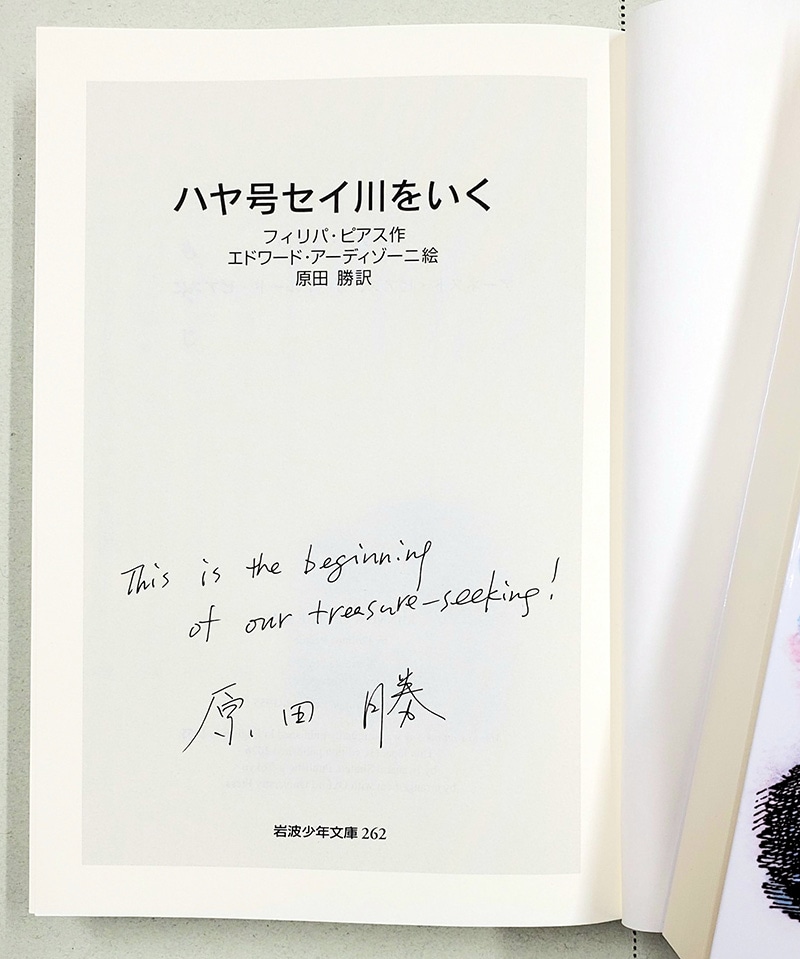 ハヤ号セイ川をいく
フィリパ・ピアス作
エドワード・アーディゾーニ絵
原田 勝訳
This is the beginning
of our treasure-seeking!
原田 勝
岩波少年文庫 262